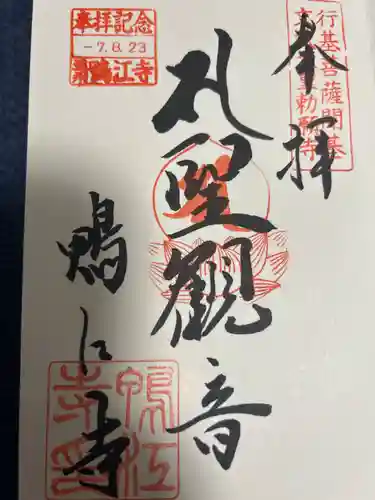 行基菩薩開基
勅願寺
奉拝
聖観音
鴨江寺
奉拝記念
-7.8.23
鴨江寺
鴨江
寺印